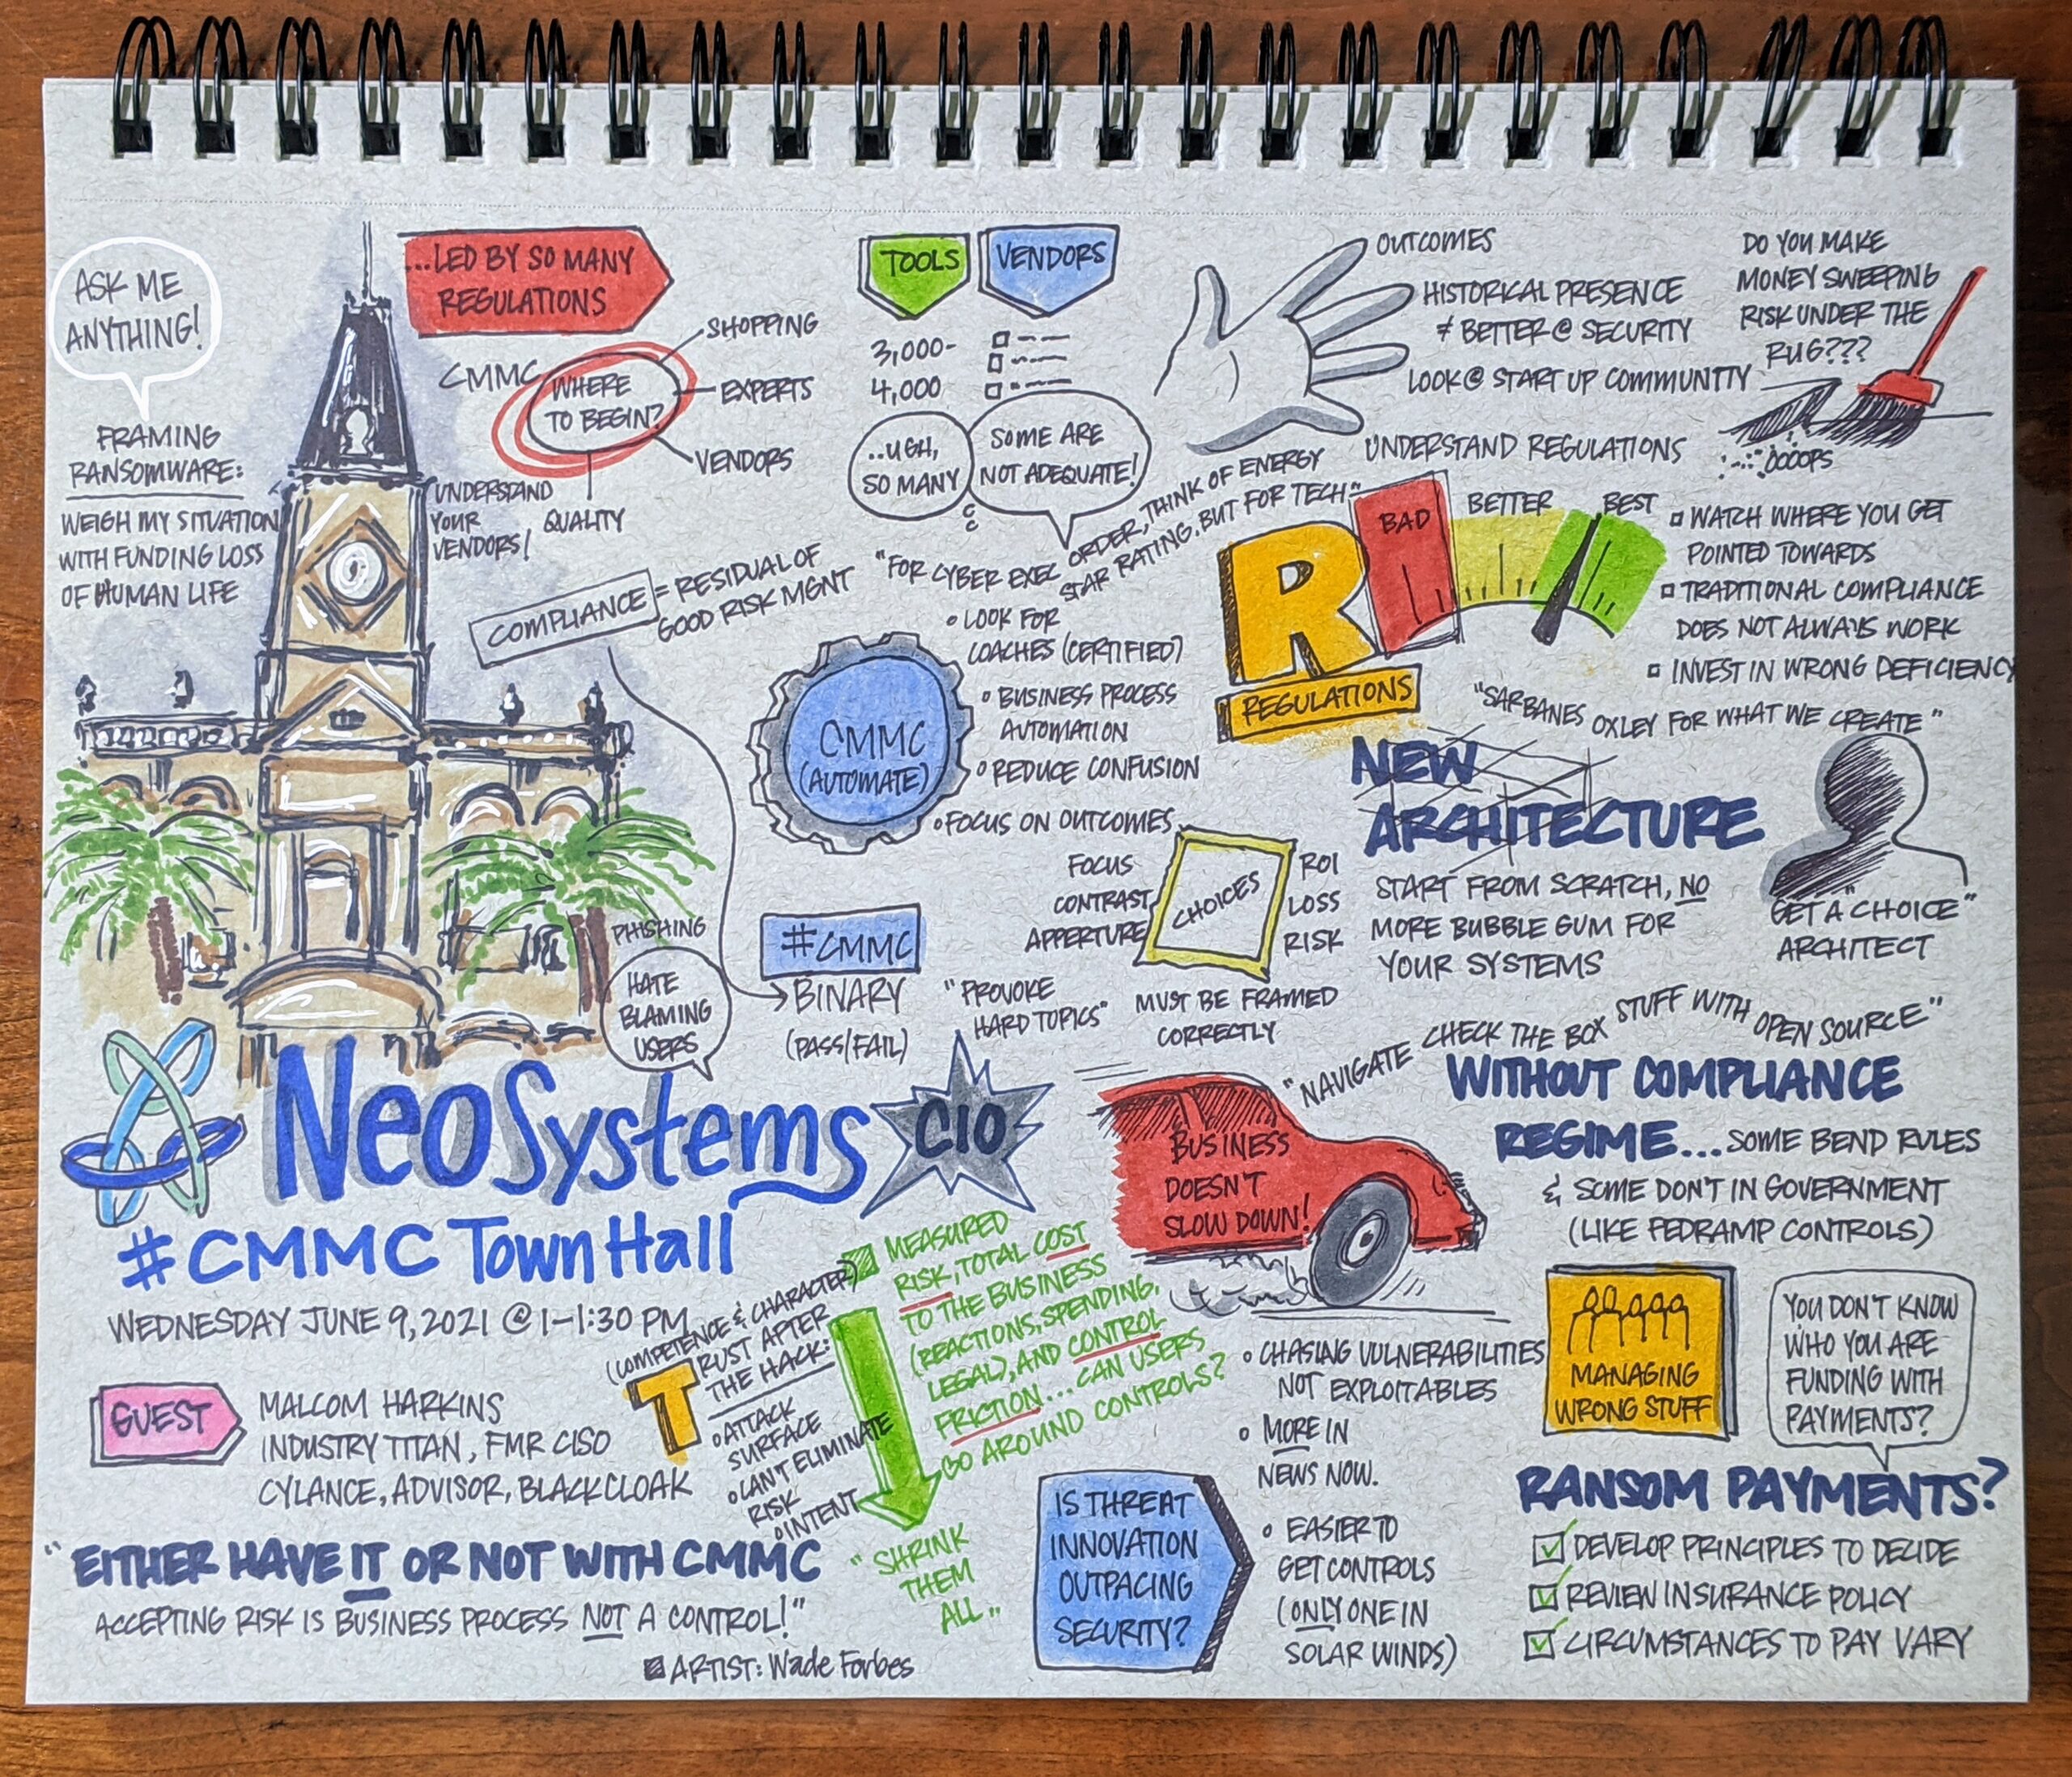 ASK ME
ANYTHING!
FRAMING
RANSOMWARE:
WEIGH MY SITUATION
WITH FUNDING LOSS
OF HUMAN LIFE
...LED BY SO MANY
REGULATIONS
CMMC
WHERE
TO BEGIN?
SHOPPING
EXPERTS
VENDORS
QUALITY
UNDERSTAND
YOUR
VENDORS!
TOOLS
VENDORS
3,000-
4,000
..UGH,
SO MANY
SOME ARE
NOT ADEQUATE!
OUTCOMES
HISTORICAL PRESENCE
≠ BETTER @ SECURITY
LOOK @ START UP COMMUNITY
UNDERSTAND REGULATIONS
DO YOU MAKE
MONEY SWEEPING
RISK UNDER THE
RUG???
OOOPS
COMPLIANCE = RESIDUAL OF
GOOD RISK MGNT
"FOR CYBER EXEC ORDER, THINK OF ENERGY
STAR RATING, BUT FOR TECH"
R
REGULATIONS
BAD
BETTER
BEST
WATCH WHERE YOU GET
POINTED TOWARDS
TRADITIONAL COMPLIANCE
DOES NOT ALWAYS WORK
INVEST IN WRONG DEFICIENCY
CMMC
(AUTOMATE)
LOOK FOR
COACHES (CERTIFIED)
BUSINESS PROCESS
AUTOMATION
REDUCE CONFUSION
FOCUS ON OUTCOMES
"SARBANES OXLEY FOR WHAT WE CREATE"
NEW
ARCHITECTURE
START FROM SCRATCH, NO
MORE BUBBLE GUM FOR
YOUR SYSTEMS
GET A "CHOICE"
ARCHITECT
FOCUS
CONTRAST
APPERTURE
CHOICES
ROI
LOSS
RISK
MUST BE FRAMED
CORRECTLY
PHISHING
HATE
BLAMING
USERS
#CMMC
BINARY
(PASS/FAIL)
"PROVOKE
HARD TOPICS"
NeoSystems
CIO
#CMMC Town Hall
WEDNESDAY JUNE 9, 2021 @ 1-1:30 PM
GUEST
MALCOM HARKINS
INDUSTRY TITAN, FMR CISO
CYLANCE, ADVISOR, BLACKCLOAK
"EITHER HAVE IT OR NOT WITH CMMC
ACCEPTING RISK IS BUSINESS PROCESS NOT A CONTROL!"
ARTIST: Wade Forbes
(COMPETENCE & CHARACTER)
TRUST AFTER
THE HACK:
ATTACK
SURFACE
CAN'T ELIMINATE
RISK
INTENT
MEASURED
RISK, TOTAL COST
TO THE BUSINESS
(REACTIONS, SPENDING,
LEGAL), AND CONTROL
FRICTION... CAN USERS
GO AROUND CONTROLS?
"SHRINK
THEM
ALL"
BUSINESS
DOESN'T
SLOW DOWN!
"NAVIGATE CHECK THE BOX STUFF WITH OPEN SOURCE"
WITHOUT COMPLIANCE
REGIME... SOME BEND RULES
& SOME DON'T IN GOVERNMENT
(LIKE FEDRAMP CONTROLS)
IS THREAT
INNOVATION
OUTPACING
SECURITY?
CHASING VULNERABILITIES
NOT EXPLOITABLES
MORE IN
NEWS NOW.
EASIER TO
GET CONTROLS
(ONLY ONE IN
SOLAR WINDS)
MANAGING
WRONG STUFF
YOU DON'T KNOW
WHO YOU ARE
FUNDING WITH
PAYMENTS?
RANSOM PAYMENTS?
DEVELOP PRINCIPLES TO DECIDE
REVIEW INSURANCE POLICY
CIRCUMSTANCES TO PAY VARY